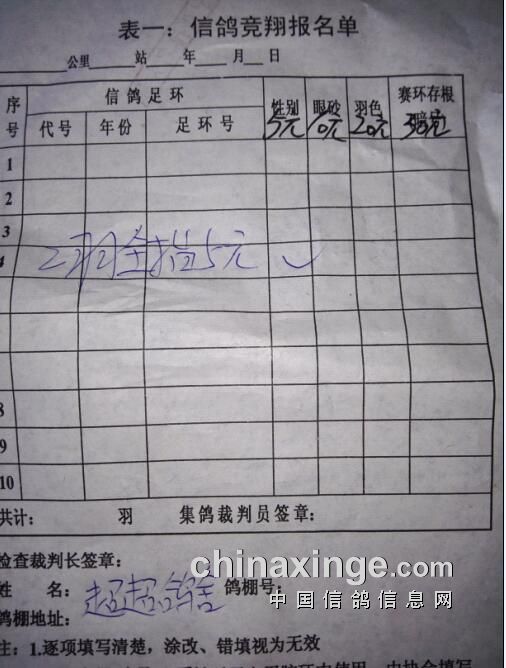 表一：信鸽竞翔报名单
公里 站 年 月 日
序号 信鸽足环 性别 眼砂 羽色 赛环存根
代号 年份 足环号 5元 10元 20元 30元
1
2
3
4 2羽全指5元 ✓
8
9
10
共计： 羽 集鸽裁判员签章：
检查裁判长签章：
姓 名：超超鸽舍 鸽棚号：
鸽棚地址：
chinaxinge.com
中国信鸽信息网
注：1.逐项填写清楚，涂改、错填视为无效